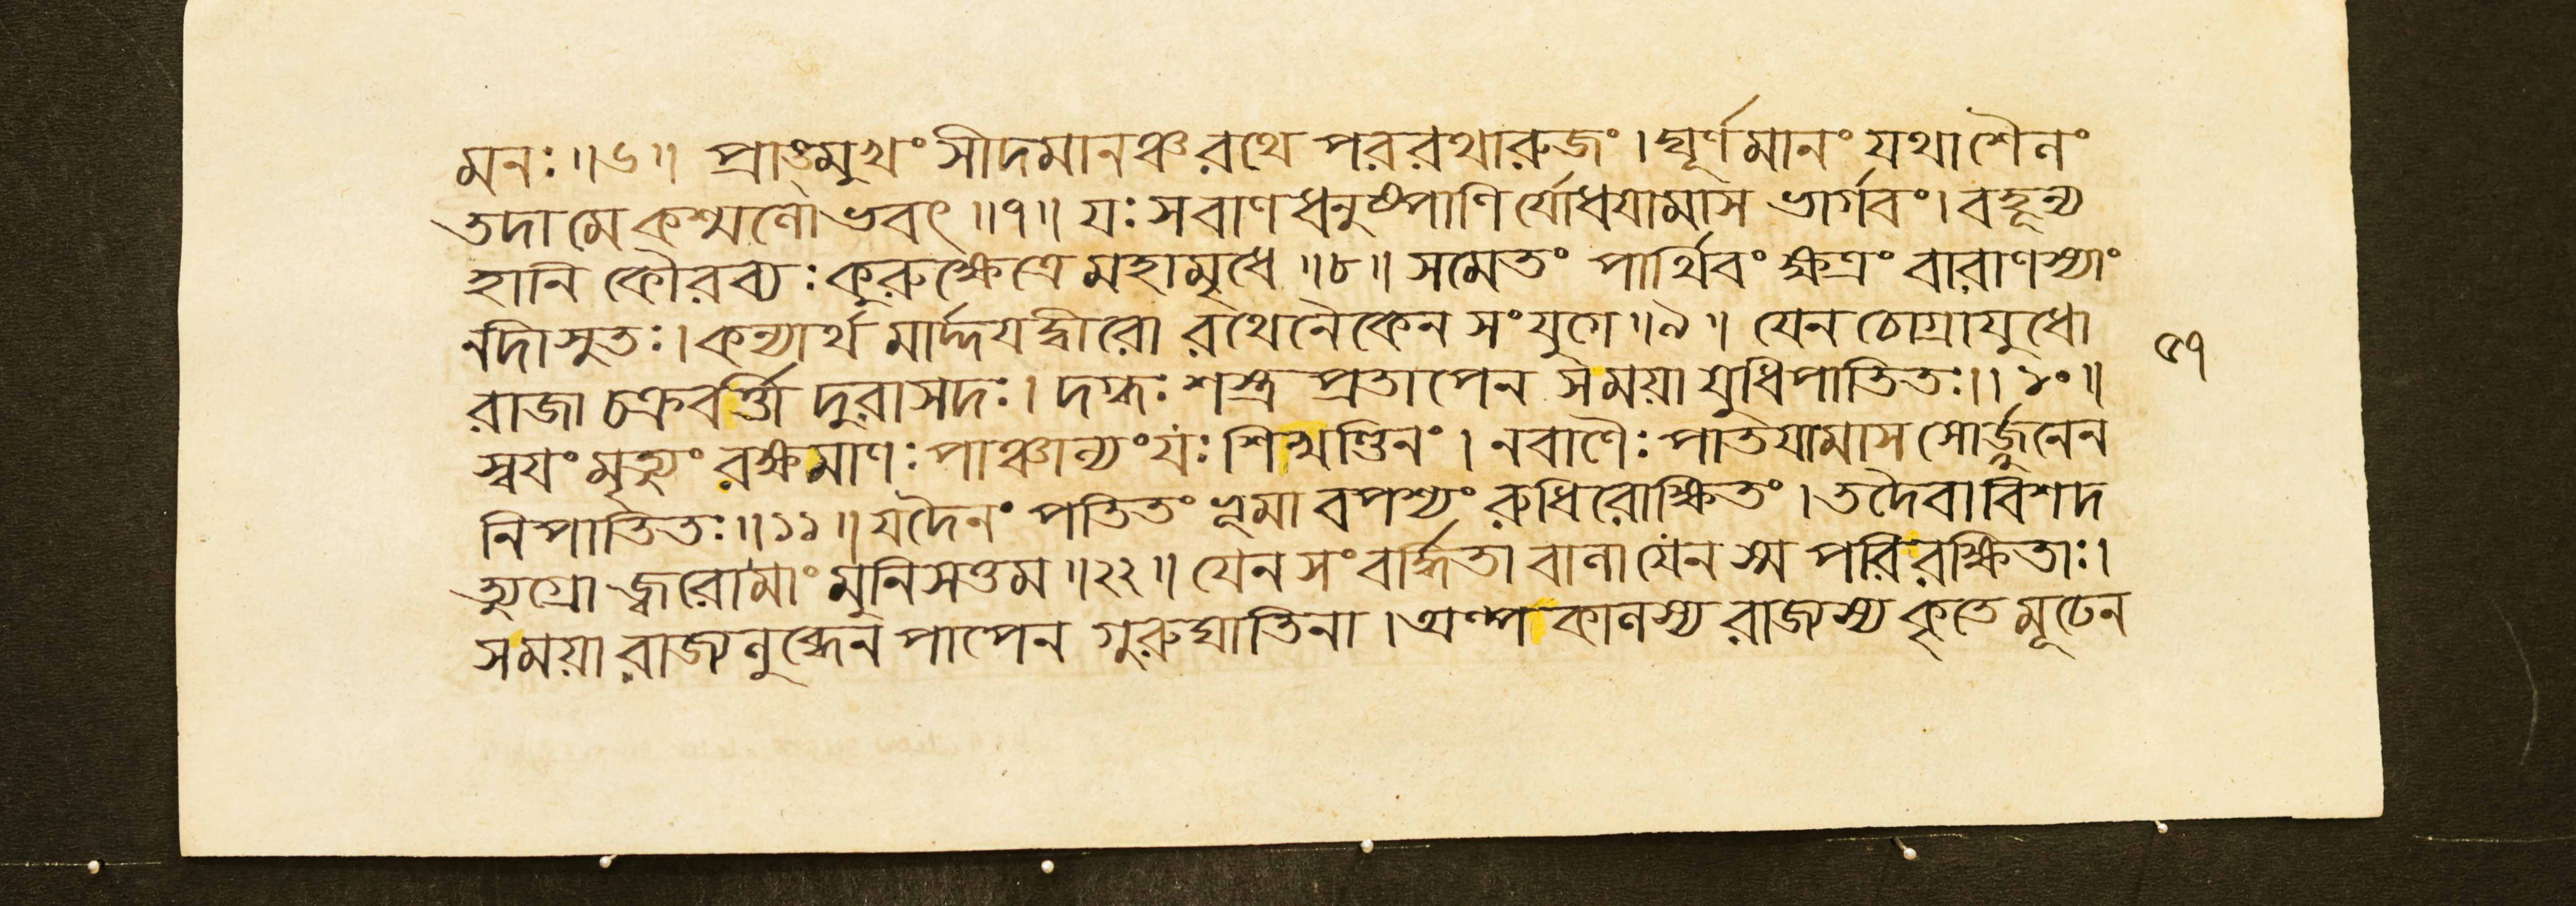 মনঃ ॥৬॥ প্রাঙ্মুখং সীদমানঞ্চ রথে পররথারুজং । ঘূর্ণমানং যথা শৈলং
তদা মে কশ্মলোভবৎ ॥৭॥ যঃ স বাণধনুষ্পাণির্যোধয়ামাস ভার্গবং । বহূন্য
হানি কৌরব্যঃ কুরুক্ষেত্রে মহামৃধে ॥৮॥ সমেতং পার্থিবং ক্ষত্রং বারাণস্যাং
নদীসুতঃ । কন্যার্থমার্দ্দয়দ্বীরো রথেনৈকেন সংযুগে ॥৯॥ যেন চোগ্রায়ুধো
রাজা চক্রবর্ত্তী দুরাসদঃ । দগ্ধঃ শস্ত্রপ্রতাপেন স ময়া যুধি পাতিতঃ ॥১০॥
স্বয়ং মৃত্যুং রক্ষমাণঃ পাঞ্চাল্যং যঃ শিখণ্ডিনং । ন বাণৈঃ পাতয়ামাস সোর্জুনেন
নিপাতিতঃ ॥১১॥ যদৈনং পতিতং ভূমাবপশ্যং রুধিরোক্ষিতং । তদৈবাবিশদ
ত্যুগ্রো জ্বরো মাং মুনিসত্তম ॥১২॥ যেন সংবর্দ্ধিতা বালা যেন স্ম পরিরক্ষিতাঃ ।
স ময়া রাজ্যলুব্ধেন পাপেন গুরুঘাতিনা । অল্পকালস্য রাজ্যস্য কৃতে মূঢেন
৫৭